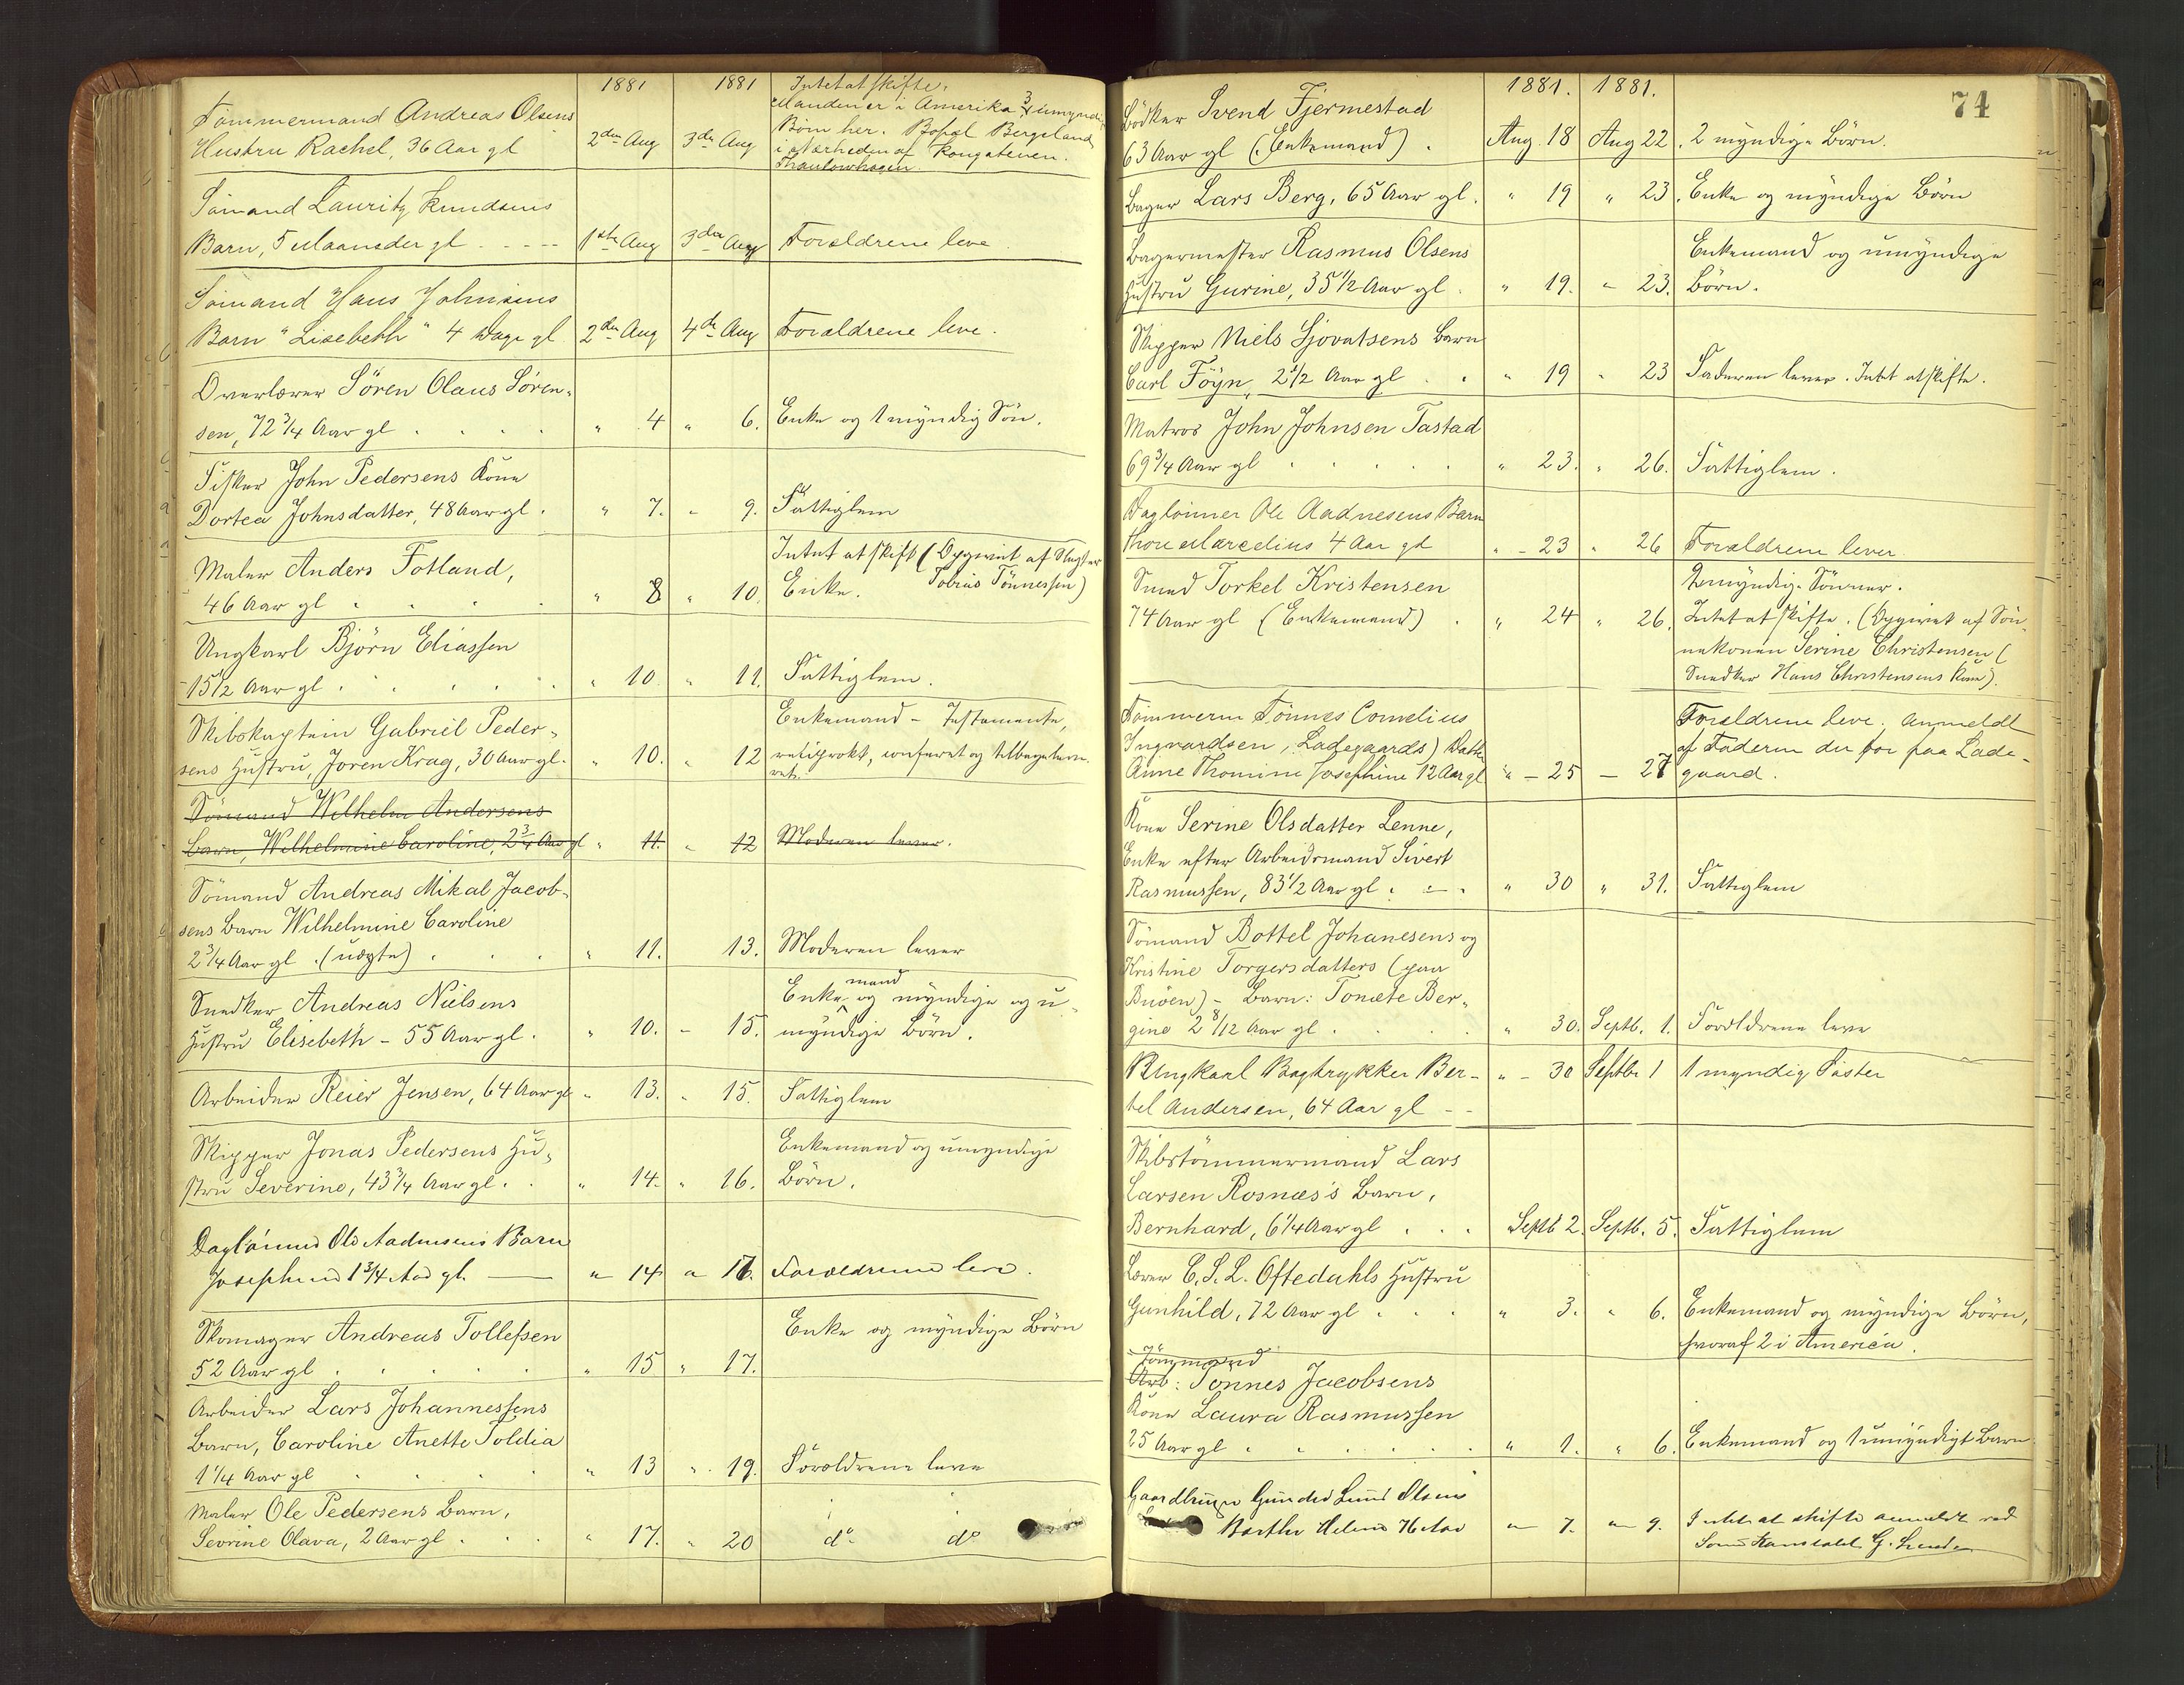 1881 1881 Intet at skifte.
Tømmermand Andreas Olsens Manden er i Amerika 3 umyndig
Hustru Rachel, 36 Aar gl 2den Aug 3de Aug Børn her. Bopæl Bergeland
i Nærheden af Kongsteinen.
Thaulowhagen.
Sömand Lauritz Knudsens
Barn, 5 Maaneder gl 1ste Aug 3die Aug Forældrene leve
Sömand Hans Johnsens
Barn "Lisebeth" 4 Dage gl 2den Aug 4de Aug Forældrene leve.
Overlærer Sören Olaus Sören-
sen, 72 3/4 Aar gl " 4 " 6. Enke og 1 myndig Sön.
Fisker John Pedersens Kone
Dortea Johnsdatter, 48 Aar gl. " 7. " 9. Fattiglem
Maler Anders Fotland, Intet at skift (Opgivet af Slagter
46 Aar gl " 8 " 10. Enke. Tobias Tönnessen)
Ungkarl Björn Eliassen
15 1/2 Aar gl. " 10. " 11. Fattiglem.
Skibskaptein Gabriel Peder- Enkemand - Testamente,
sens Hustru, Joren Krag, 30 Aar gl. " 10. " 12 reciprokt, confereret og tilbageleve-
ret.
Sömand Wilhelm Andersens
Barn, Wilhelmine Caroline, 2 3/4 Aar gl " 11. " 12 Moderen lever.
Sömand Andreas Mikal Jacob-
sens Barn Wilhelmine Caroline
2 3/4 Aar gl. (uægte) " 11. 13. Moderen lever
Snedker Andreas Nielsens Enkemand og myndige og u-
Hustru Elisebeth - 55 Aar gl. " 10. - 15. myndige Börn.
Arbeider Reier Jensen, 64 Aar gl " 13. " 15. Fattiglem
Skipper Jonas Pedersens Hu- Enkemand og umyndige
stru Severine, 43 3/4 Aar gl. " 14. " 16. Börn.
Daglönner Ole Aadnesens Barn
Josephine 1 3/4 Aar gl. " 14 " 17. Forældrene leve.
Skomager Andreas Tollefsen Enke og myndige Börn
52 Aar gl " 15 " 17.
Arbeider Lars Johannessens
Barn, Caroline Anette Toldia
1 1/4 Aar gl " 13 " 19. Forældrene leve
Maler Ole Pedersens Barn,
Sevrine Olava, 2 Aar gl. " 17. " 20 do do
74
1881. 1881.
Bödker Svend Fjermestad
63 Aar gl (Enkemand). Aug. 18 Aug 22. 2 myndige Börn.
Bager Lars Berg, 65 Aar gl. " 19 " 23. Enke og myndige Börn
Bagermester Rasmus Olsens Enkemand og umyndige
Hustru Gurine, 35 1/2 Aar gl. " 19. " 23. Börn.
Skipper Niels Sjovatsens Barn
Carl Föyn, 2 1/2 Aar gl. " 19 " 23 Faderen lever. Intet at skifte.
Matros John Johnsen Tastad
69 3/4 Aar gl " 23. " 26. Fattiglem.
Daglönner Ole Aadnesens Barn
Thore Marcelius 4 Aar gl " - 23 " 26 Forældrene lever
Smed Torkel Kristensen 2 myndige Sönner.
74 Aar gl (Enkemand) " 24 " 26. Intet at skifte. (Opgivet af Sön-
nekonen Serine Christensen (
Snedker Hans Christensens Kone).
Tømmerm Tönnes Cornelius Forældrene leve. anmeldt
Ingvardsen, Ladegaards) Datter af Faderen der bor paa Lade-
Anne Thomine Josephine 12 Aar gl " - 25 - 27 gaard.
Kone Serine Olsdatter Lenne,
Enke efter Arbeidsmand Sivert
Rasmussen, 83 1/2 Aar gl. " 30 " 31. Fattiglem
Sömand Bottel Johanesens og
Kristine Torgersdatters (paa
Buöen) - Barn: Tonete Ber-
gine 2 8/12 Aar gl. " 30. Septb. 1. Forældrene leve
Ungkarl Bogtrykker Ber- " - 30 Septbr 1 1 myndig Söster
tel Andersen, 64 Aar gl - -
Skibstömmermand Lars
Larsen Rosnæs's Barn,
Bernhard, 6 1/4 Aar gl. Septb 2. Septb. 5. Fattiglem
Lærer C. S. L. Oftedahls Hustru
Gunhild, 72 Aar gl. " 3. " 6. Enkemand og myndige Börn,
hvoraf 2 i America.
Tömmand
Arb: Tönnes Jacobsens
Kone Laura Rasmussen
25 Aar gl. " 1. " 6. Enkemand og 1 umyndigt Barn
Gaardbruger Gunder Lund Olsens
Barthe Helene 76 Aar " 7. " 9. Intet at skifte anmeldt ved
Sönn G. Lunden